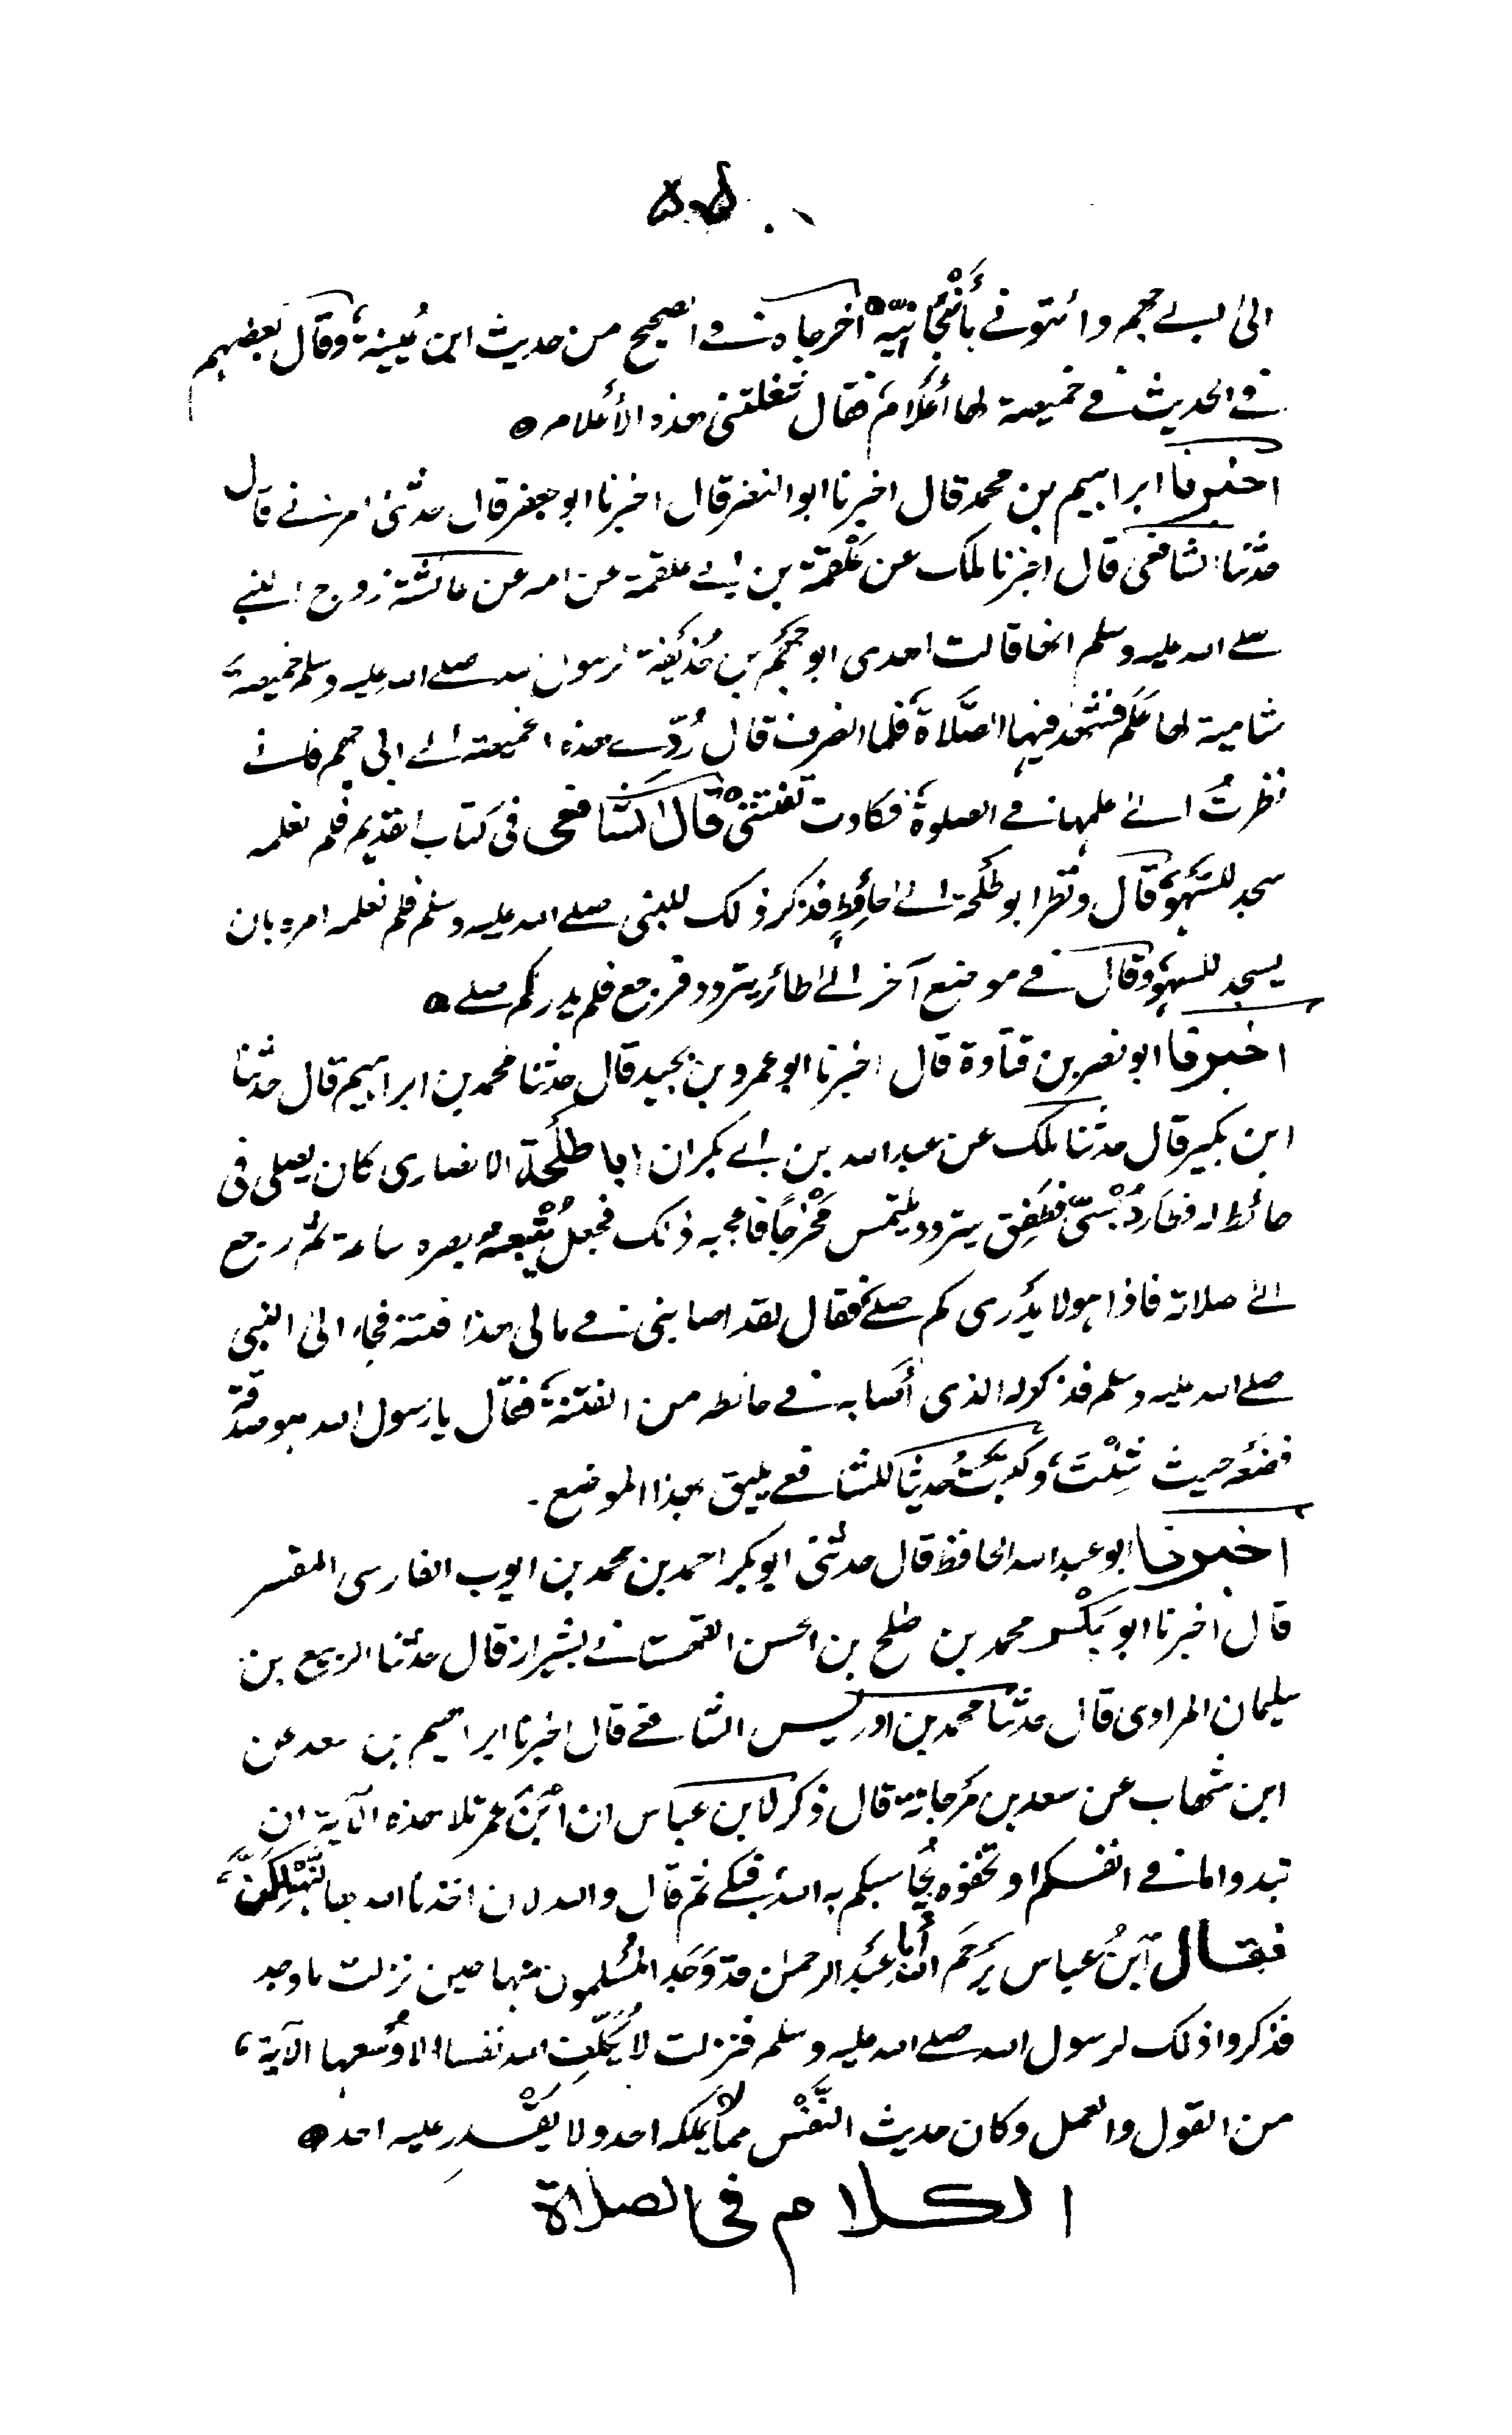 الى ابى جهم وائتونى بأَنْبِجَانِيَّة اخرجاه فى الصحيح من حديث ابن عُيينة، وقال بعضهم
فى الحديث فى خميصة لها أعْلَام فقال شغلتنى هذه الأعلام
اخبرنا ابراهيم بن محمد قال اخبرنا ابو النضر قال اخبرنا ابو جعفر قال حدثنى المزنى قال
حدثنا الشافعى قال اخبرنا ملك عن عَلْقَمَة بن ابى علقمة عن امه عن عائشة زوج النبى
صلى الله عليه وسلم انها قالت اهدى ابو جَهْم بن حُذَيْفة لرسول الله صلى الله عليه وسلم خميصةً
شامية لها عَلَم فشهد فيها الصَّلاة، فلما انصرف قال رُدِّى هذه الخميصة الى ابى جهم فانى
نظرتُ الى علمها فى الصلوة، فكادت تفتننى قال الشافعى فى كتاب القديم فلم نعلمه
سجد للسَّهْو، قال ونظر ابو طَلْحَة الى حائِطٍ فذكر ذلك للنبى صلى الله عليه وسلم فلم نعلمه امره بان
يسجد للسهو، وقال فى موضع آخر الى طائر يتردد فرجع فلم يدر كم صلى
اخبرنا ابو نصر بن قتادة قال اخبرنا ابو عمرو بن نجيد قال حدثنا محمد بن ابراهيم قال حدثنا
ابن بكير قال حدثنا ملك عن عبد الله بن ابى بكر ان ابا طلْحَة الانصارى كان يصلى فى
حائط له فطار دُبْسىّ فطَفِق يتردد يلتمس مَخْرَجًا فاعجبه ذلك فجعل يُتْبِعهُ بصره ساعة ثم رجع
الى صلاته فاذا هو لا يَدْرى كم صلى، فقال لقد اصابنى فى مالى هذا فتنة فجاء الى النبى
صلى الله عليه وسلم فذكر له الذى أصابه فى حائطه من الفتنة، فقال يا رسول الله هو صدقة
فضَعْه حيث شِئْتَ، وكتبتُ حديثًا للشافعى يليق بهذا الموضع.
اخبرنا ابو عبد الله الحافظ قال حدثنى ابو بكر احمد بن محمد بن ايوب الفارسى المفسر
قال اخبرنا ابو بَكْر محمد بن صلح بن الحسن القهستانى بشيراز قال حدثنا الربيع بن
سليمان المرادى قال حدثنا محمد بن ادريس الشافعى قال اخبرنا ابراهيم بن سعد عن
ابن شهاب عن سعد بن مَرجانة قال ذكر لابن عباس ان ابْنَ عمر تلا هذه الآية ان
تبدوا ما فى انفسكم او تخفوه يُحاسبكم به الله، فبكى ثم قال والله لان اخذنا الله بها لَنَهْلِكَنَّ،
فقال ابنُ عباس يَرحَم اللهُ أبا عَبْد الرحمن قد وَجَد المُسْلمون منها حين نزلت ما وجد
فذكروا ذلك لرسول الله صلى الله عليه وسلم فنزلت لا يُكَلِّف الله نفسا الا وُسْعها الآية،
من القول والعمل وكان حديث النَّفْس مما لا يملكه احد ولا يَقْدِر عليه احد
الكلام فى الصلاة